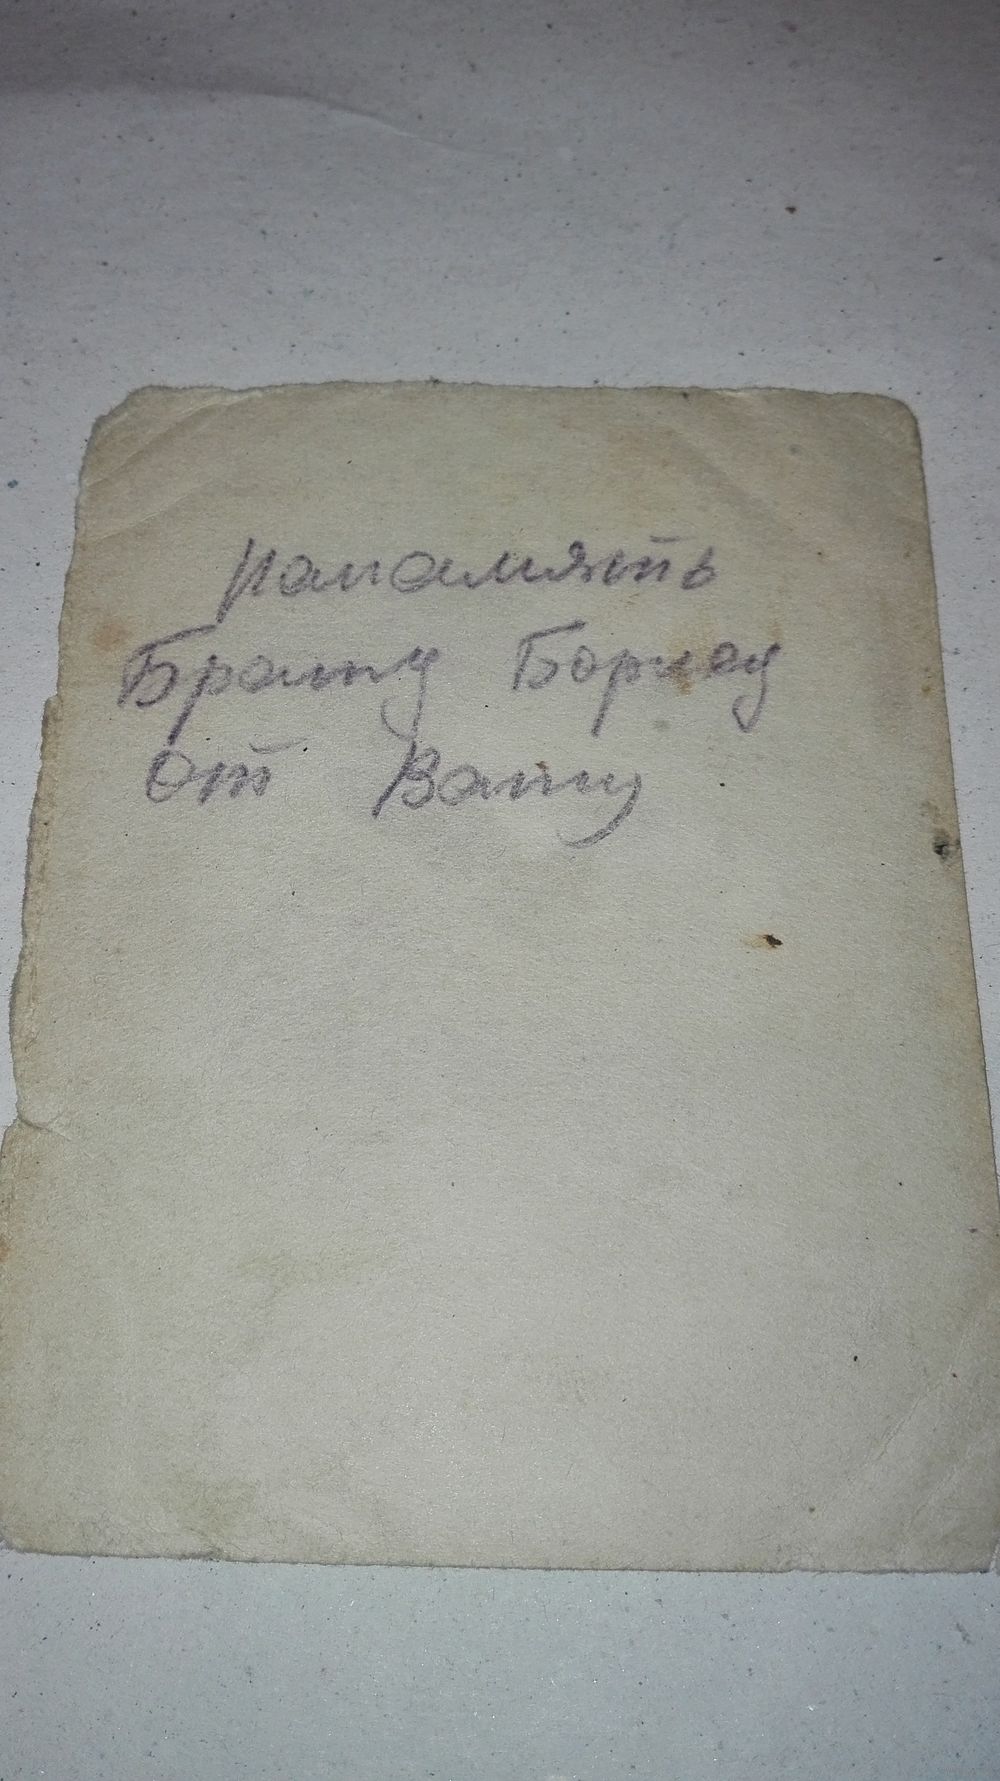 напамять
Брату Борису
от Вани